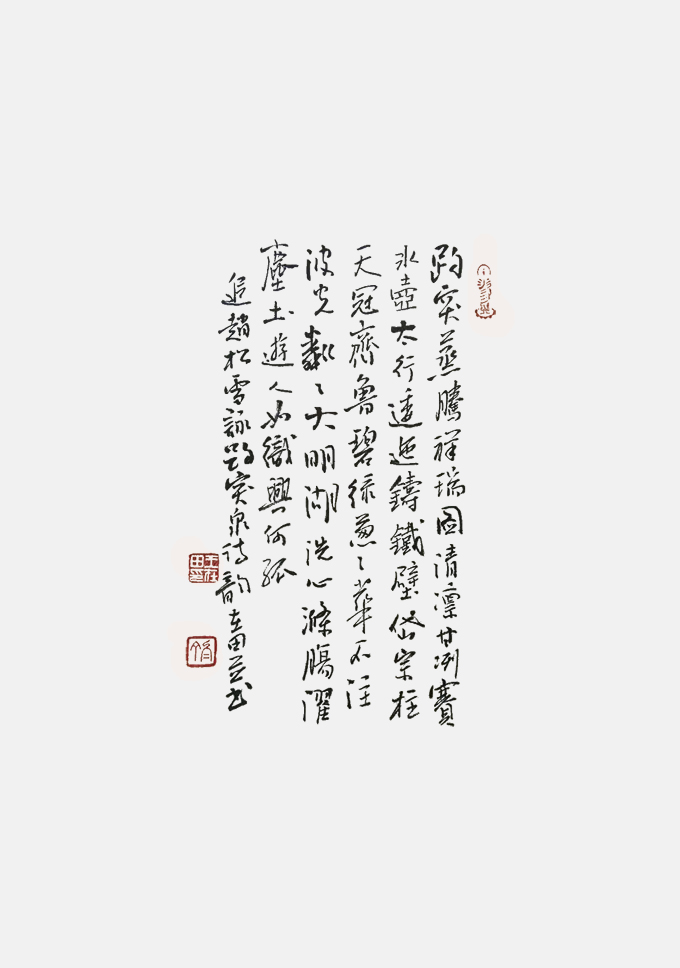 趵突蒸騰祥瑞圖清凛甘冽賽
冰壺太行逶迤鑄鐵壁岱宗柱
天冠齊魯碧綠蔥〻華不注
波光粼〻大明湖洗心滌腸濯
塵土遊人如織興何孤
追趙松雪詠趵突泉詩韵在田並书